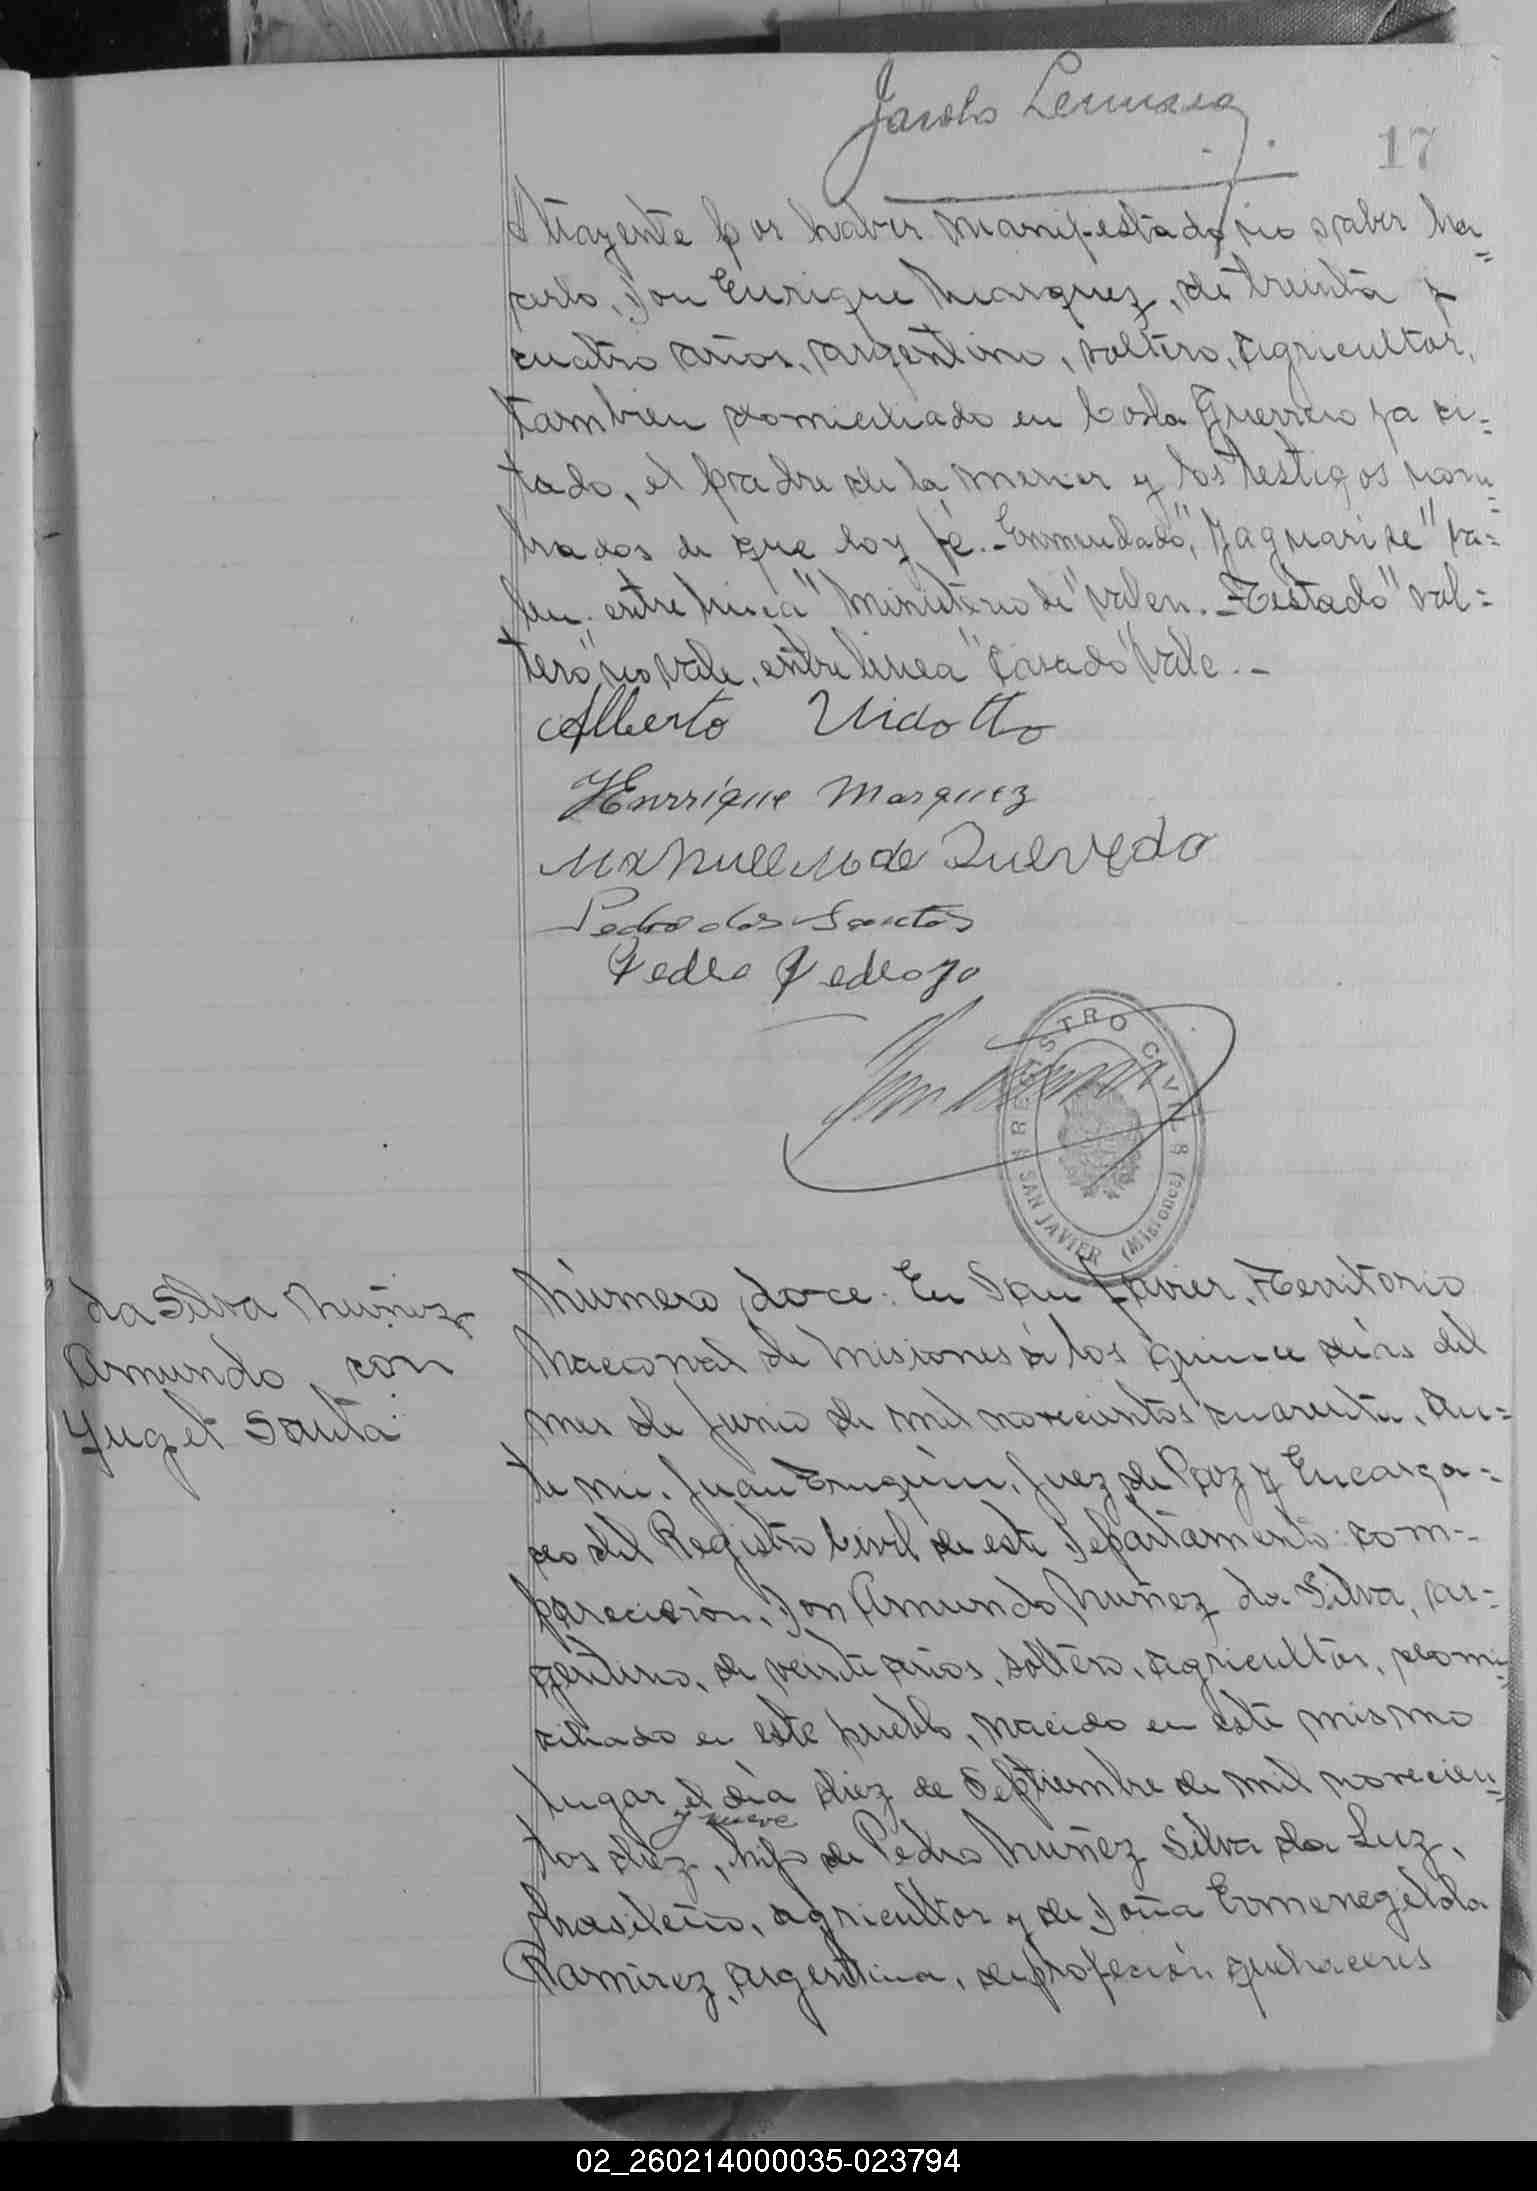 Jacobo
17
trayente por haber manifestado no saber ha=
cerlo, Don Enrique Marquez, de treinta y
cuatro años, argentino, soltero, agricultor,
tambien domiciliado en Costa Guerrero ya ci=
tado, el padre de la menor y los testigos nom=
brados de que doy fé.- Enmendado, "Yaguari de" va=
len. entre linea "Ministerio de" valen.- Testado "sol=
tero" no vale, entre linea "casado" vale.-
Alberto Vidotto
Henrrique Marquez
M de Quevedo
Pedro dos Santos
Pedro Pedrozo
REGISTRO CIVIL
SAN JAVIER (Misiones)
da Silva Nuñez
Amundo con
Yuget Santa
Número doce: En San Javier, Territorio
Nacional de Misiones á los quince dias del
mes de Junio de mil novecientos cuarenta, an=
te mi, Juan Juez de Paz y Encarga=
do del Registro Civil de este Departamento: com=
parecieron, Don Amundo Nuñez da Silva, ar=
gentino, de veinte años, soltero, agricultor, domi=
ciliado en este pueblo, nacido en este mismo
lugar el día diez de Septiembre de mil novecien=
y nueve
tos diez, hijo de Pedro Nuñez Silva da Luz,
brasileño, agricultor y de Doña Ermenegilda
Ramirez, argentina, de profeción quehaceres
02_260214000035-023794